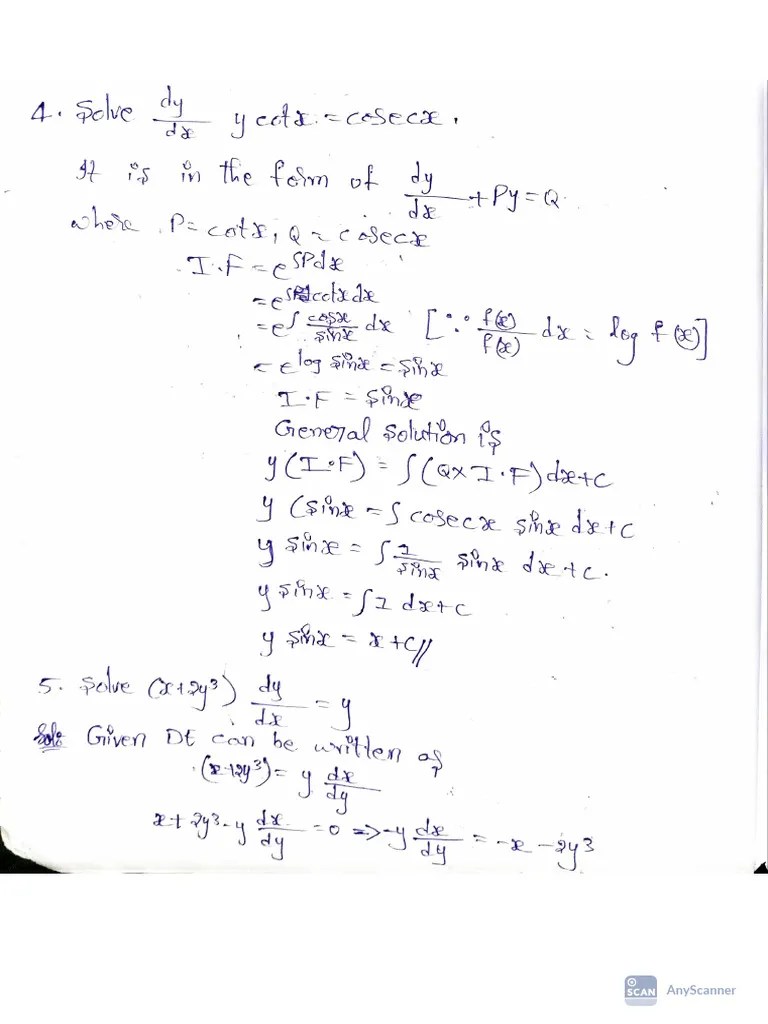 4. Solve dy/dx y cotx = cosecx.
It is in the form of dy/dx + Py = Q
where P = cotx, Q = cosecx
I.F = e^∫Pdx
= e^∫cotxdx
= e^∫ cosx/sinx dx [∵ f(x)/f(x) dx = log f(x)]
= e^log sinx = sinx
I.F = sinx
General solution is
y (I.F) = ∫(Q x I.F) dx+c
y (sinx = ∫ cosecx sinx dx+c
y sinx = ∫ 1/sinx sinx dx+c.
y sinx = ∫1 dx+c
y sinx = x+c//
5. Solve (x+2y³) dy/dx = y
Sol: Given DE can be written as
(x+2y³) = y dx/dy
x+2y³-y dx/dy = 0 => -y dx/dy = -x-2y³
SCAN AnyScanner